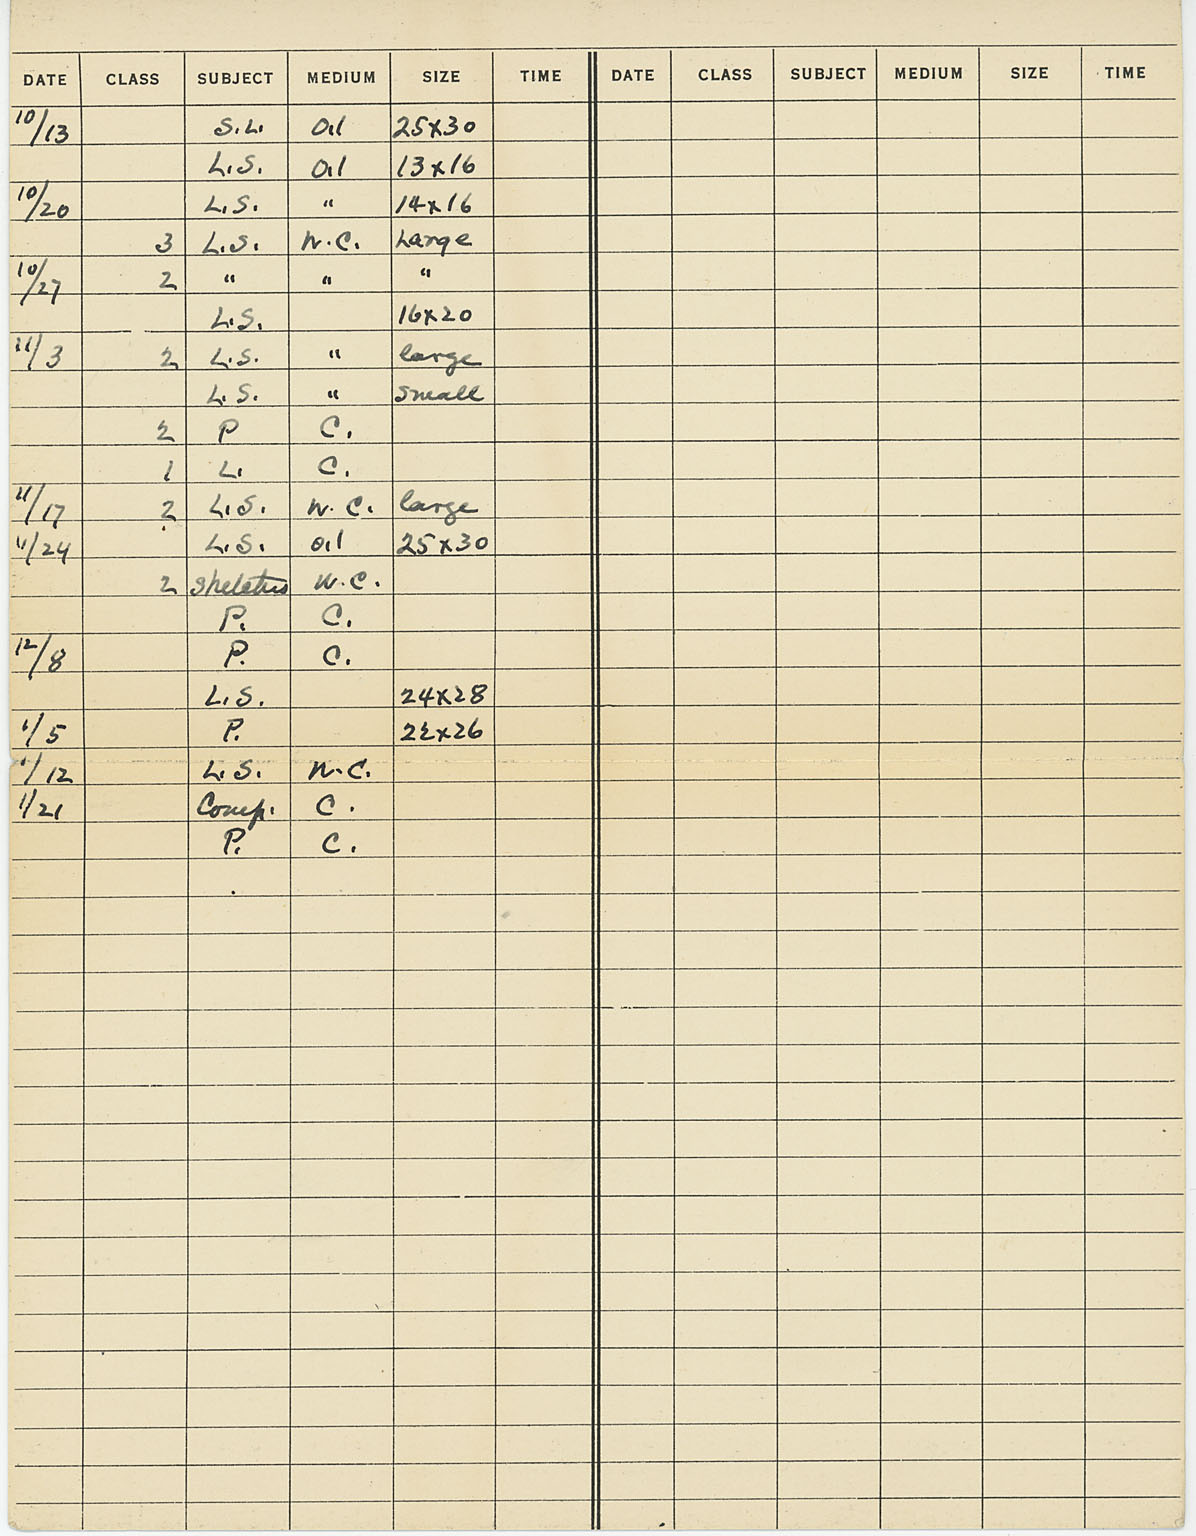 DATE CLASS SUBJECT MEDIUM SIZE TIME DATE CLASS SUBJECT MEDIUM SIZE TIME
10/13 S.L. Oil 25x30
L.S. Oil 13x16
10/20 L.S. " 14x16
3 L.S. W.C. Large
10/27 2 " " "
L.S. 16x20
11/3 2 L.S. " large
L.S. " small
2 P C.
1 L. C.
11/17 2 L.S. W.C. large
11/24 L.S. Oil 25x30
2 W.C.
P. C.
12/8 P. C.
L.S. 24x28
1/5 P. 22x26
1/12 L.S. W.C.
1/21 Comp. C.
P. C.